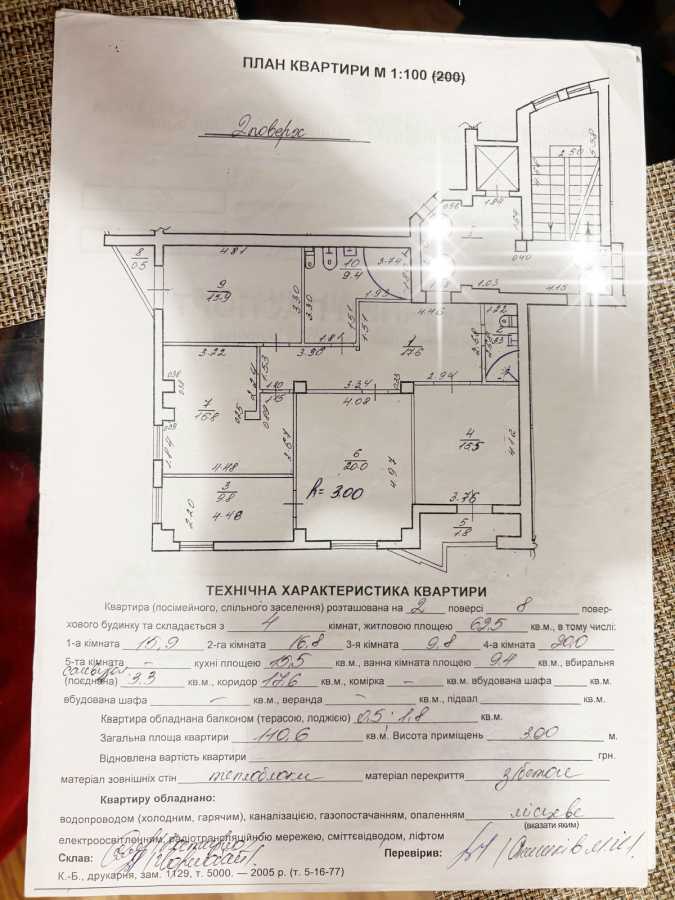 ПЛАН КВАРТИРИ М 1:100 (200)
2 поверх
2.50
5.58
1.84
0.96
0.40
4.15
1.03
8
0.5
4.81
9
15.9
3.30
3.30
10
9.4
3.74
1.93
1.51
1.51
1.81
4.45
1
17.6
1.22
2
3.3
2.68
3.22
3.90
1.53
2.24
1.10
1.15
3.34
0.23
2.94
0.38
0.38
7
16.8
0.25
0.89
0.39
1.84
4.48
2.67
4.08
6
20.0
4.97
h=3.00
4
15.5
4.12
3.76
3
9.8
2.20
4.48
5
1.8
ТЕХНІЧНА ХАРАКТЕРИСТИКА КВАРТИРИ
Квартира (посімейного, спільного заселення) розташована на 2 поверсі 8 повер-
хового будинку та складається з 4 кімнат, житловою площею 62,5 кв.м., в тому числі:
1-а кімната 15,9 2-га кімната 16,8 3-я кімната 9,8 4-а кімната 20,0
5-та кімната – кухні площею 15,5 кв.м., ванна кімната площею 9.4 кв.м., вбиральня
санвузол
(поєднана) 3.3 кв.м., коридор 17,6 кв.м., комірка – кв.м. вбудована шафа кв.м.
вбудована шафа – кв.м., веранда – кв.м., підвал кв.м.
Квартира обладнана балконом (терасою, лоджією) 0,5; 1,8 кв.м.
Загальна площа квартири 110,6 кв.м. Висота приміщень 3.00 м.
Відновлена вартість квартири грн.
матеріал зовнішніх стін теплоблоки матеріал перекриття з/бетон
Квартиру обладнано:
водопроводом (холодним, гарячим), каналізацією, газопостачанням, опаленням місцеве
(вказати яким)
електроосвітленням, радіотрансляційною мережею, сміттєвідводом, ліфтом
Склав: Перевірив:
К.-Б., друкарня, зам. 1129, т. 5000. — 2005 р. (т. 5-16-77)